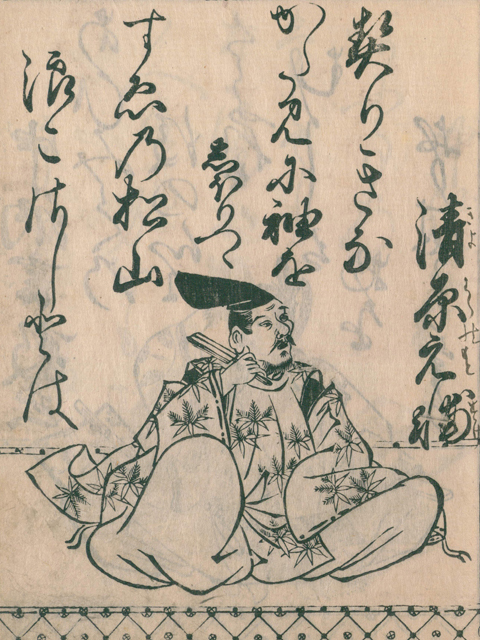 清原元輔
契りきな
かたみに袖を
しほりつゝ
すゑの松山
浪こさしとは